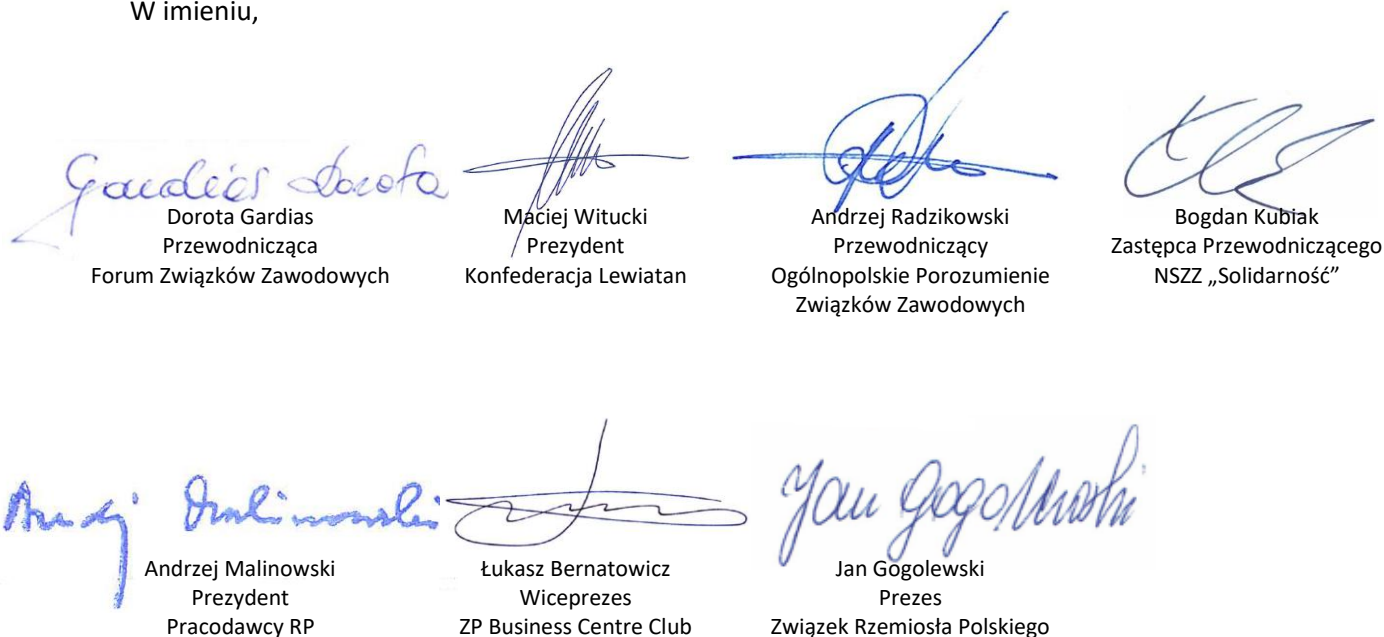 W imieniu,
Gardias Dorota
Dorota Gardias
Przewodnicząca
Forum Związków Zawodowych
Maciej Witucki
Prezydent
Konfederacja Lewiatan
Andrzej Radzikowski
Przewodniczący
Ogólnopolskie Porozumienie
Związków Zawodowych
Bogdan Kubiak
Zastępca Przewodniczącego
NSZZ „Solidarność”
Andrzej Malinowski
Prezydent
Pracodawcy RP
Łukasz Bernatowicz
Wiceprezes
ZP Business Centre Club
Jan Gogolewski
Jan Gogolewski
Prezes
Związek Rzemiosła Polskiego